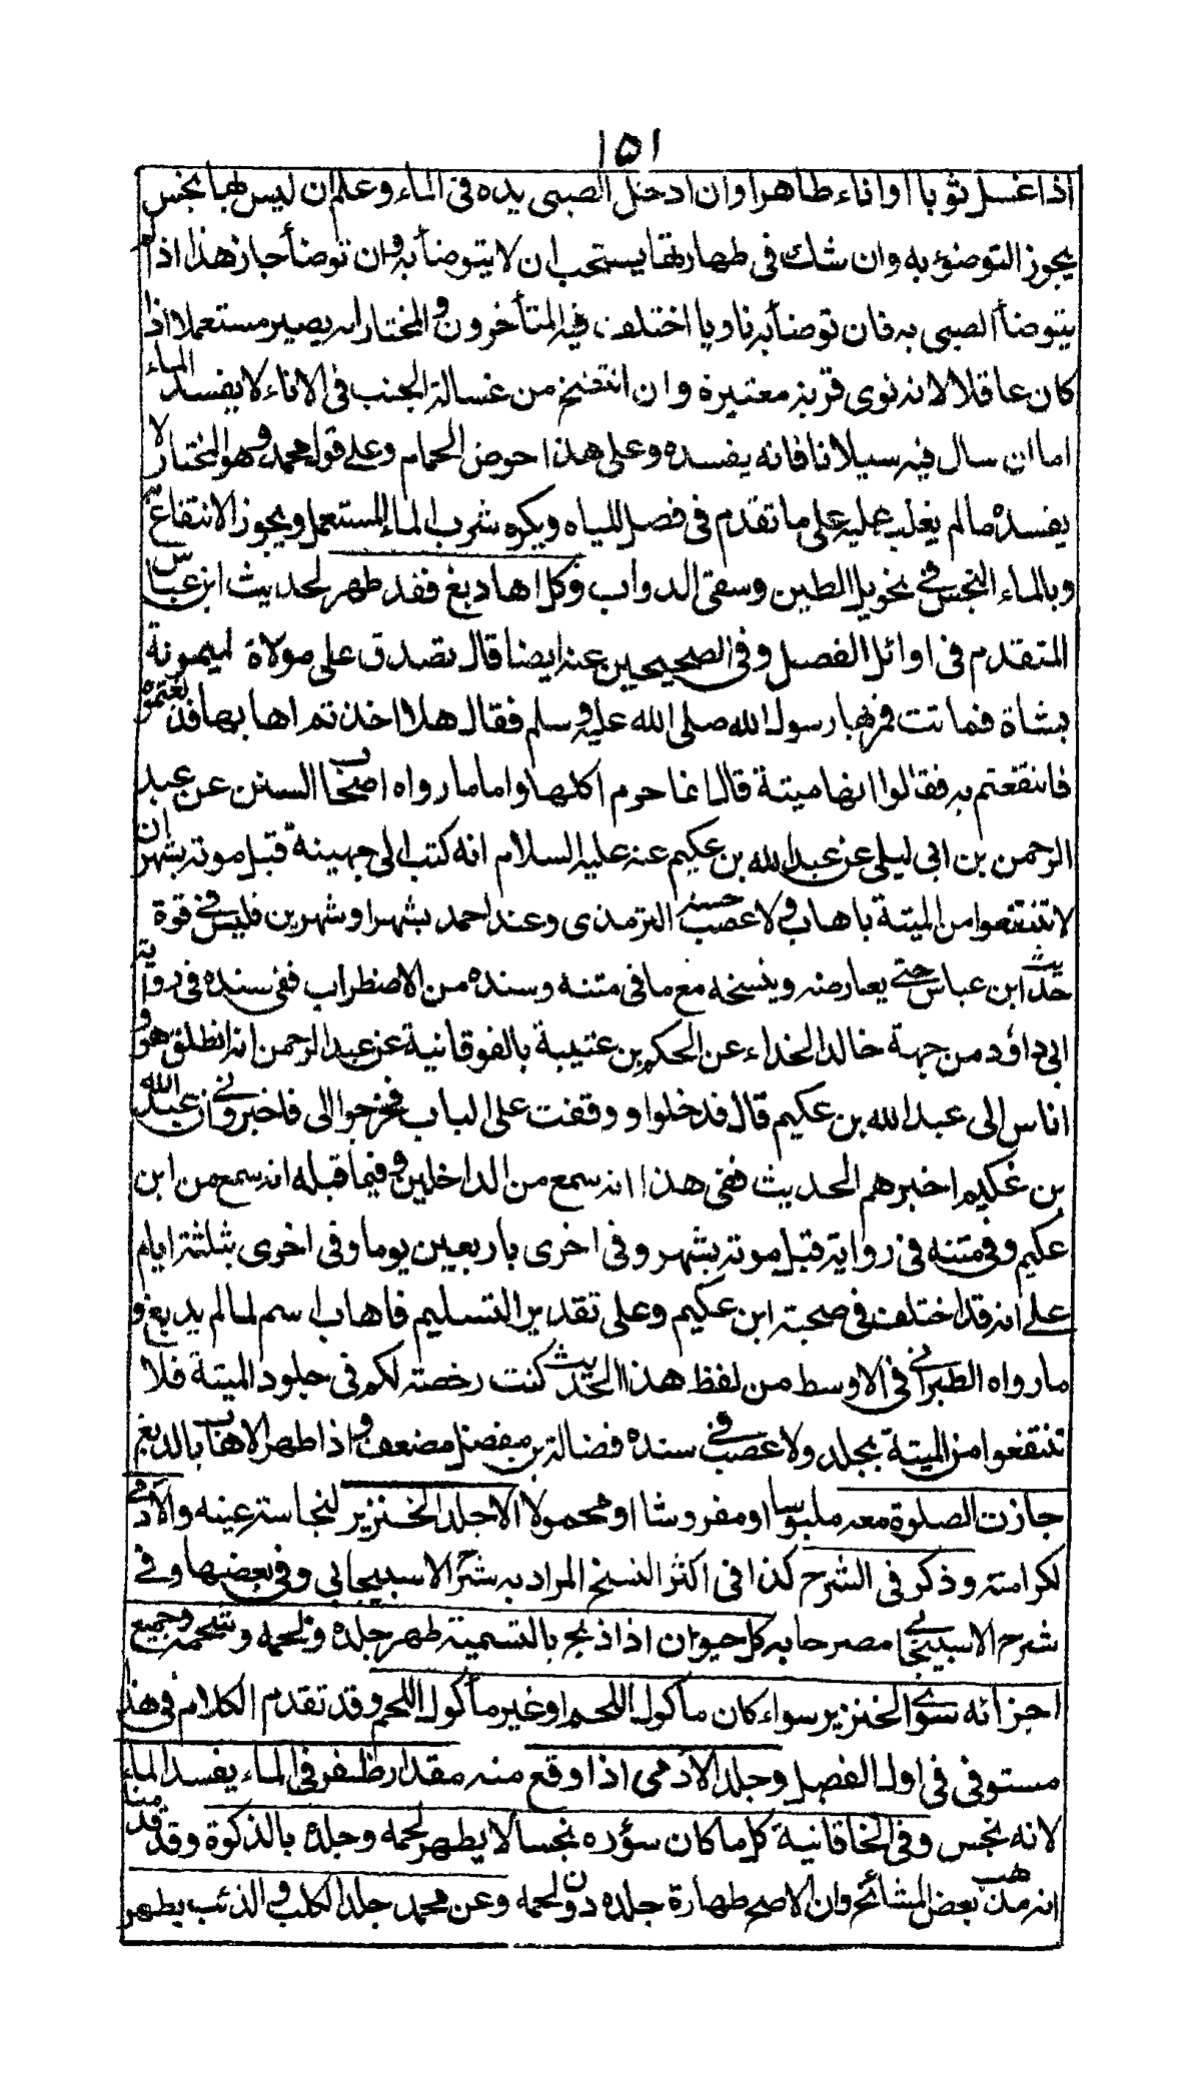 ١٥١
اذا غسل ثوبا او اناء طاهرا وان ادخل الصبى يده فى الماء وعلم ان ليس بها نجس
يجوز التوضؤ به وان شك فى طهارتها يستحب ان لا يتوضأ به وان توضأ جاز هذا اذا لم
يتوضأ الصبى به فان توضأ به ناويا اختلف فيه المتأخرون و المختار انه يصير مستعملا اذا
كان عاقلا لانه نوى قربة معتبرة وان انتضخ من غسالة الجنب فى الاناء لا يفسد الماء
اما ان سال فيه سيلانا فانه يفسده وعلى هذا حوض الحمام وعلى قول محمد وهو المختار لا
يفسده مالم يغلب عليه على ما تقدم فى فصل المياه ويكره شرب الماء المستعمل ويجوز الانتفاع به
وبالماء النجس فى نحو بل الطين وسقى الدواب وكل اهاب دبغ فقد طهر لحديث ابن عباس
المتقدم فى اوائل الفصل وفى الصحيحين عنه ايضا قال تصدق على مولاة لميمونة
بشاة فماتت فمر بها رسول الله صلى الله عليه وسلم فقال هلا اخذتم اهابها فدبغتموه
فانتفعتم به فقالوا انها ميتة قال انما حرم اكلها واما ما رواه اصحاب السنن عن عبد
الرحمن بن ابى ليلى عن عبد الله بن عكيم عنه عليه السلام انه كتب الى جهينة قبل موته بشهر ان
لا تنتفعوا من الميتة باهاب ولا عصب حسنه الترمذى وعند احمد بشهر او شهرين فليس فى قوة
حديث ابن عباس حتى يعارضه وينسخه مع ما فى متنه وسنده من الاضطراب ففى سنده فى رواية
ابى داؤد من جهة خالد الحذاء عن الحكم بن عتيبة بالفوقانية عن عبد الرحمن انه انطلق هو و
اناس الى عبد الله بن عكيم قال فدخلوا ووقفت على الباب فخرجوا الى فاخبرونى ان عبد الله
بن عكيم اخبرهم الحديث ففى هذا انه سمع من الداخلين وفيما قبله انه سمع من ابن
عكيم وفى متنه فى رواية قبل موته بشهر وفى اخرى باربعين يوما وفى اخرى بثلثة ايام
على انه قد اختلف فى صحبة ابن عكيم وعلى تقدير التسليم فاهاب اسم لما لم يدبغ و
ما رواه الطبرانى فى الاوسط من لفظ هذا الحديث كنت رخصت لكم فى جلود الميتة فلا
تنتفعوا من الميتة بجلد ولا عصب فى سنده فضالة بن مفضل مضعف واذا طهر الاهاب بالدبغ
جازت الصلوة معه ملبوسا او مفروشا او محمولا الا جلد الخنزير لنجاسة عينه والآدمى
لكرامته وذكر فى الشرح كذا فى اكثر النسخ المراد به شرح الاسبيجابى وفى بعضها وفى
شرح الاسبيجابى مصرحا به كل حيوان اذا ذبح بالتسمية طهر جلده ولحمه وشحمه وجميع
اجزائه سوى الخنزير سواء كان مأكول اللحم او غير مأكول اللحم وقد تقدم الكلام فى هذا
مستوفى فى اول الفصل وجلد الآدمى اذا وقع منه مقدار ظفر فى الماء يفسد الماء
لانه نجس وفى الخاقانية كل ما كان سؤره نجسا لا يطهر لحمه وجلده بالذكوة وقد قدمنا
انه مذهب بعض المشائخ وان الاصح طهارة جلده دون لحمه وعن محمد جلد الكلب والذئب يطهر